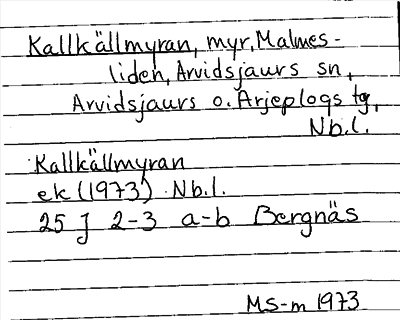 Kallkällmyran, myr, Malmes-
liden, Arvidsjaurs sn,
Arvidsjaurs o. Arjeplogs tg,
Nb.l.
Kallkällmyran
ek (1973) Nb.l.
25 J 2-3 a-b Bergnäs
MS-m 1973